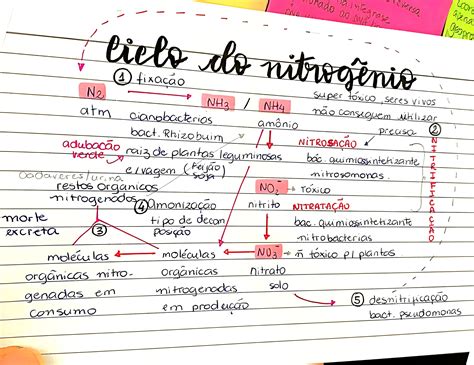 ciclo do nitrogênio
① fixação
N₂
NH₃ / NH₄
super tóxico, seres vivos
não conseguem utilizar
atm
cianobacterias
amônio
precisa
②
NITRIFICAÇÃO
bact. Rhizobuim
NITROSAÇÃO
adubação
verde
raiz de plantas leguminosas
bac. quimiossintetizante
e/vagem (feijão
soja)
nitrosomonas.
cadaveres/urina
restos orgânicos
nitrogenados
NO₂⁻ → tóxico
④ Amonização
nitrito
NITRATAÇÃO
morte
excreta
③
tipo de decom
posição
bac. quimiossintetizante
nitrobacterias
moléculas
moléculas
NO₃⁻ → ñ tóxico p/ plantas
orgânicas nitro-
genadas em
consumo
orgânicas
nitrogenadas
em produção
nitrato
solo
⑤ desnitrificação
bact. pseudomonas